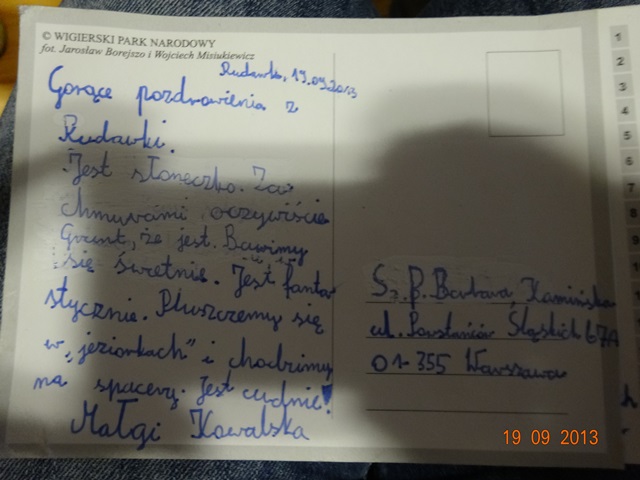 © WIGIERSKI PARK NARODOWY
fot. Jarosław Borejszo i Wojciech Misiukiewicz
Rudawka, 19.09.2013
Gorące pozdrowienia z
Rudawki.
Jest słoneczko. Za
chmurami oczywiście.
Grunt, że jest. Bawimy
się świetnie. Jest fanta
stycznie. Pluszczemy się
w "jeziorkach" i chodzimy
na spacery. Jest cudnie!
Małgi Kowalska
Sz. P. Barbara Kamińska
ul. Powstańców Śląskich 67A
01-355 Warszawa
1
2
3
4
7
8
9
19 09 2013